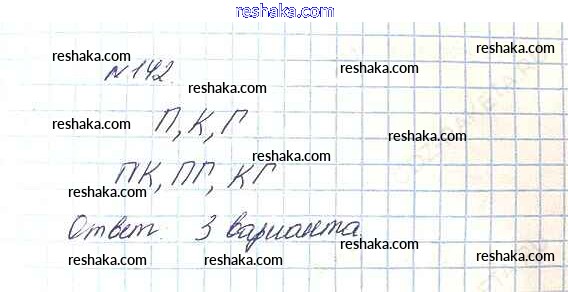 reshaka.com
reshaka.com
reshaka.com
№142.
reshaka.com
reshaka.com
reshaka.com
П, К, Г
reshaka.com
reshaka.com
ПК, ПГ, КГ
reshaka.com
reshaka.com
Ответ. 3 варианта.
reshaka.com
reshaka.com
reshaka.com
reshaka.com